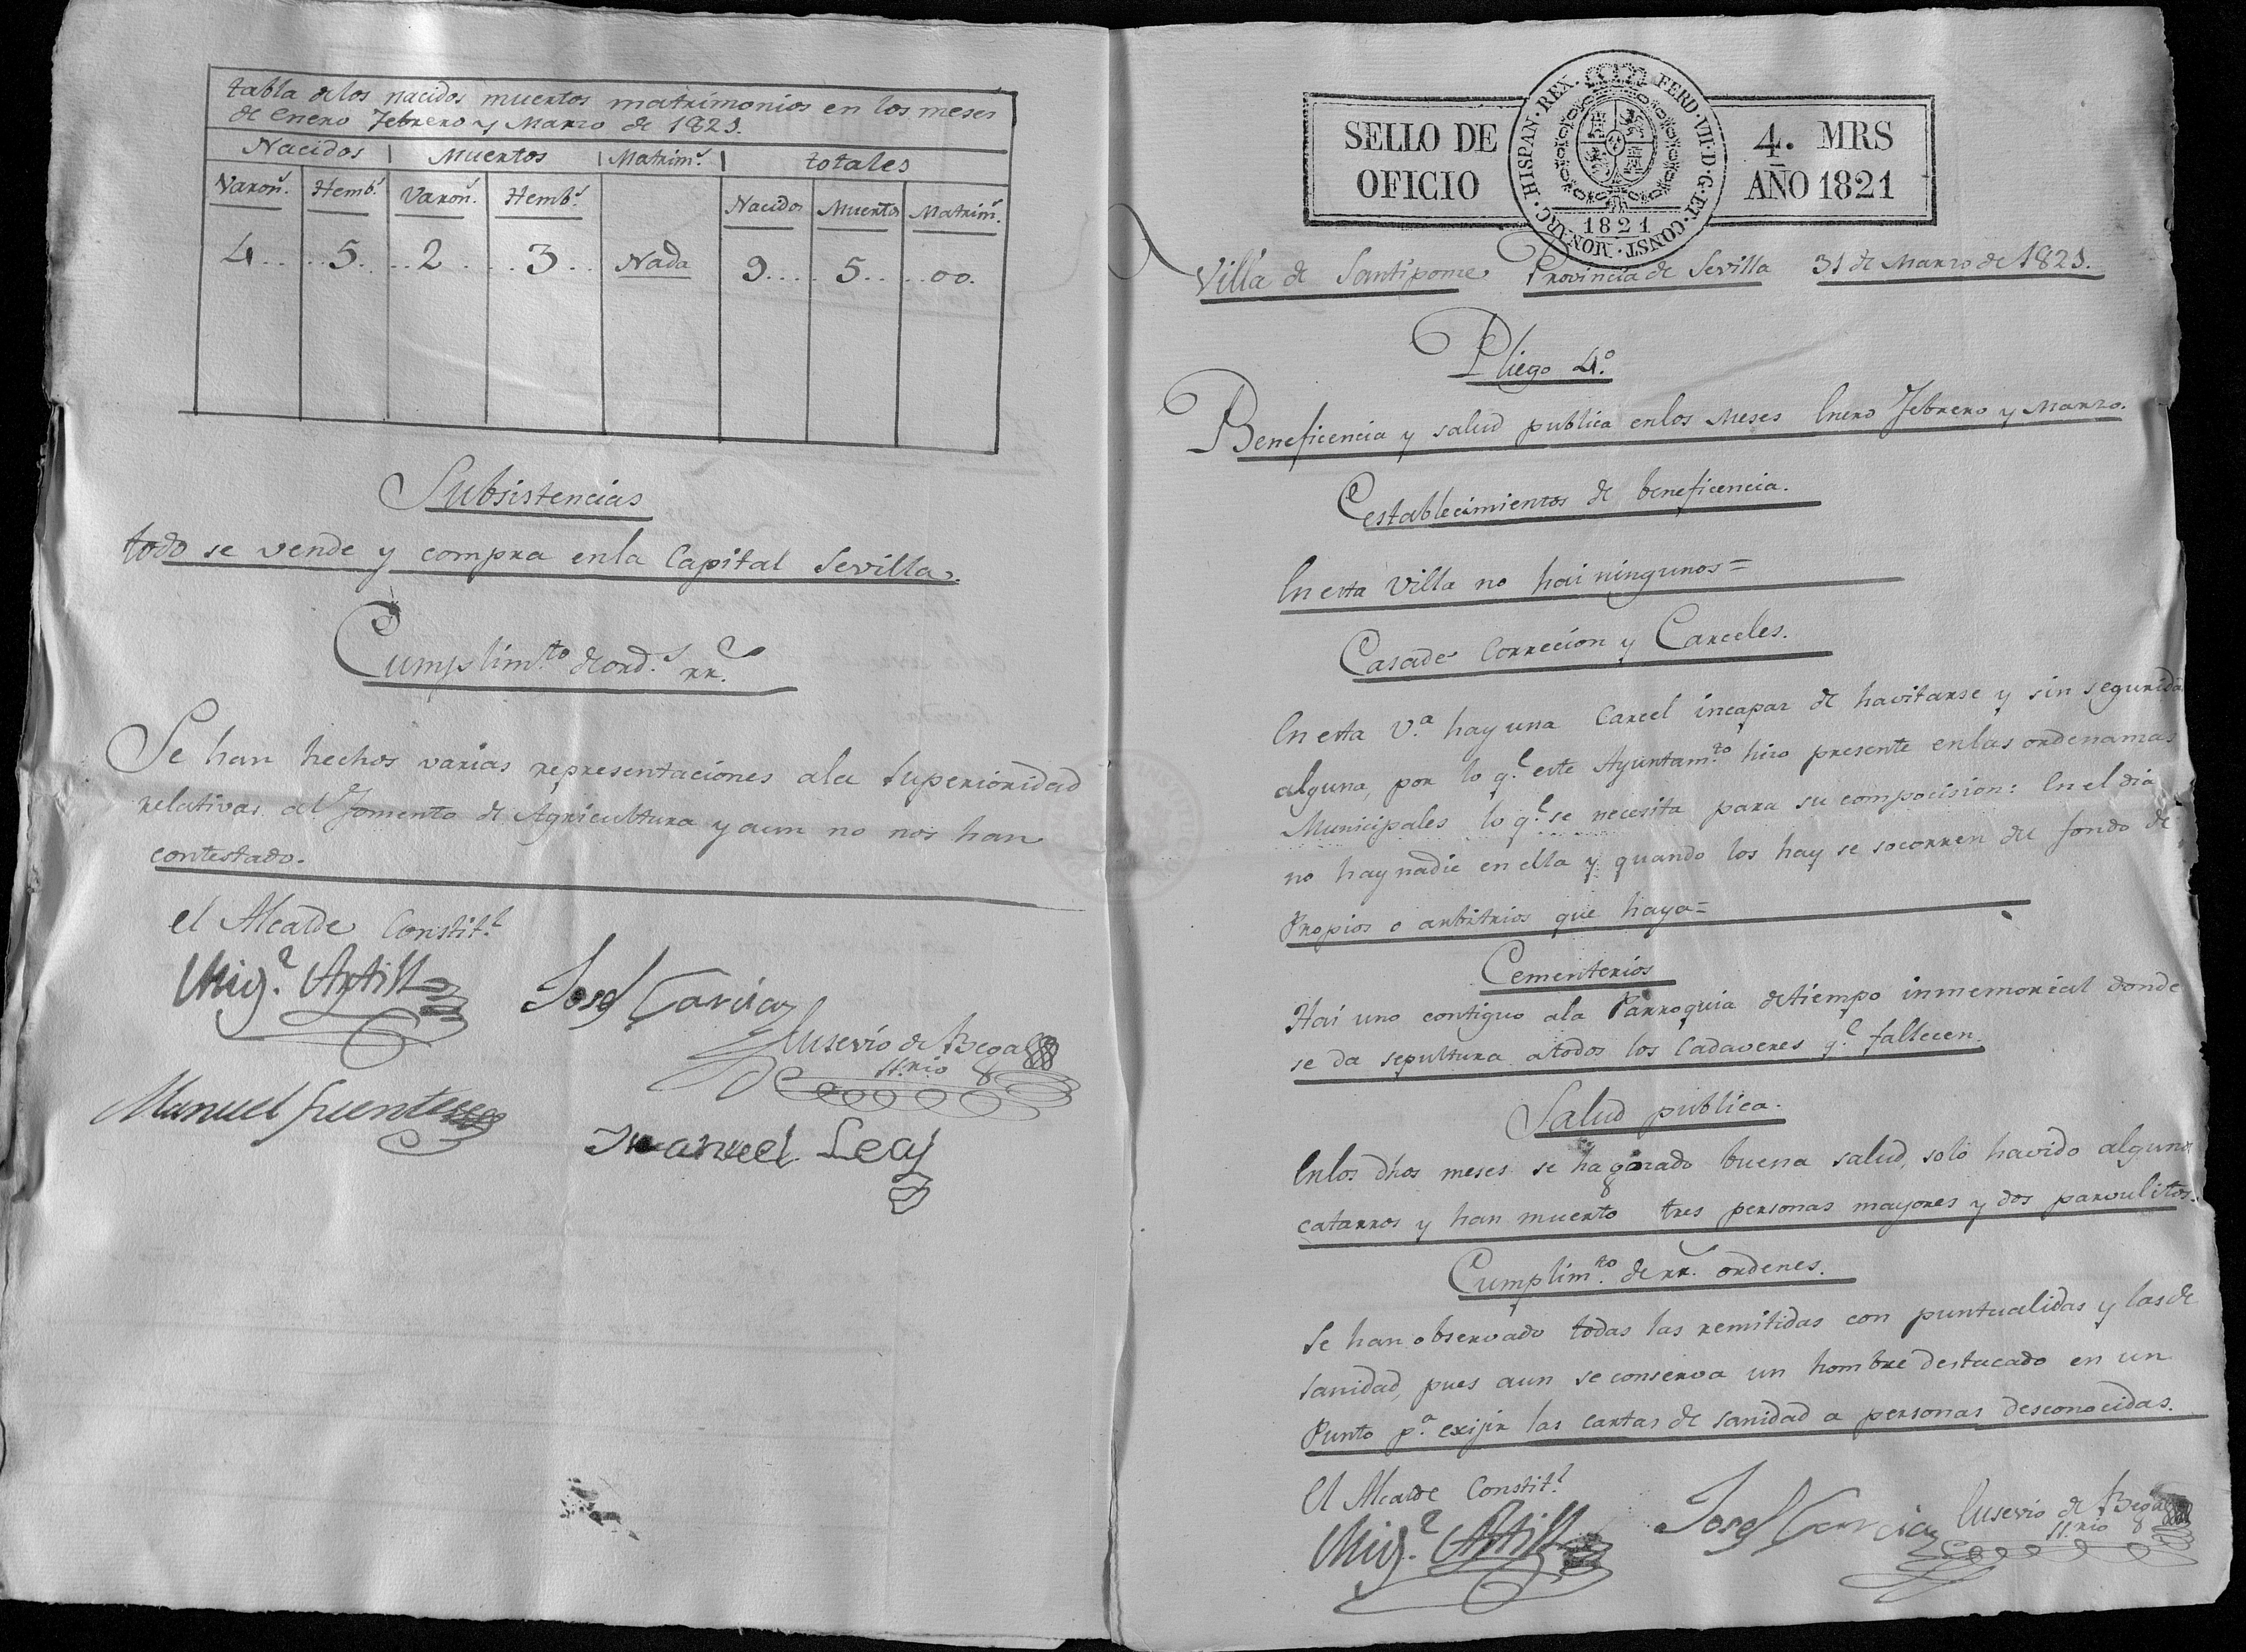 tabla de los nacidos muertos matrimonios en los meses
de Enero Febrero y Marzo de 1821.
Nacidos Muertos Matrim.s totales
Varon.s Hemb.s Varon.s Hemb.s Nacidos Muertos Matrim.s
4 5 2 3 Nada 9 5 00.
Subsistencias
todo se vende y compra en la Capital Sevilla.
Cumplim.to de ord.s rr.s
Se han hechos varias representaciones ala Superioridad
relativas al fomento de Agricultura y aun no nos han
contestado.
el Alcalde Constit.l
Mig.l
Josef Garcia
Eusevio de Bega
ss.rio
Manuel fuentes
Manuel Leal
SELLO DE OFICIO
HISPAN. REX. FERD. VII. D. G. ET. CONST. MONARC.
1821
4. MRS
AÑO 1821
Villa de Santipome Provincia de Sevilla 31 de Marzo de 1821.
Pliego 4.o
Beneficencia y salud publica enlos Meses Enero Febrero y Marzo.
Establecimientos de beneficencia.
En esta Villa no hai ningunos=
Casa de Correcion y Carceles.
En esta V.a hay una Carcel incapaz de havitarse y sin segurida
alguna, por lo q.e este Ayuntam.to hizo presente enlas ordenamas
Municipales lo q.e se necesita para su composicion: En el dia
no hay nadie en ella y quando los hay se socorren del fondo de
Propios o arbitrios que haya=
Cementerios
Hai uno contiguo ala Parroquia detiempo inmemorial donde
se da sepultura atodos los Cadaveres q.e fallecen.
Salud publica.
Enlos dhos meses se ha gozado buena salud, solo havido algunos
catarros y han muerto tres personas mayores y dos parvulitos.
Cumplim.to de rr.s ordenes.
Se han observado todas las remitidas con puntualidas y las de
sanidad, pues aun se conserva un hombre destacado en un
Punto p.a exijir las cartas de sanidad a personas desconocidas.
El Alcalde Constit.l
Mig.l
Josef Garcia
Eusevio de Bega
ss.rio